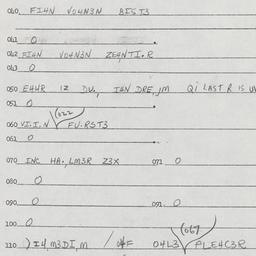 040 FIHN VOHN3N BIST3
041 O
042 FIHN VOHN3N ZEHNTI.R
043 O
050 EHHR 12 DU., IHN DRE,JM Qi LAST R IS UV
051 O
(022
060 VI.I.N FU.RST3
061 O
070 INC HA., LM3R Z3X 071 O
080 O
090 O 091 O
100 O (067
110 )I4,M3DI,M / 04F 04L3 PLE4C3R